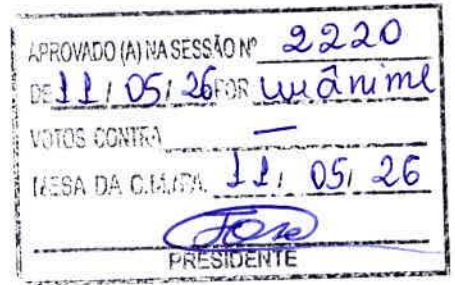 APROVADO (A) NA SESSÃO Nº 2220
DE 11 / 05 / 26 FOR unânime
VOTOS CONTRA —
MESA DA C.M. 11 / 05 / 26
PRESIDENTE